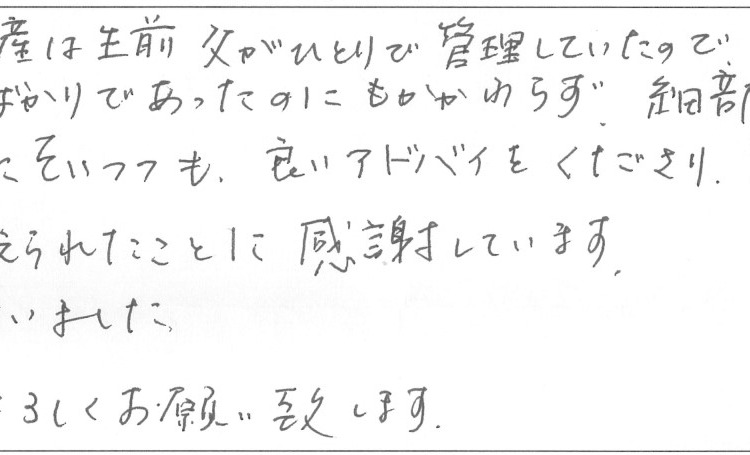 産は生前父がひとりで管理していたので
ばかりであったのにもかかわらず、細部
にそいつつも、良いアドバイをくださり、
えられたことに感謝しています。
いました。
ろしくお願い致します。